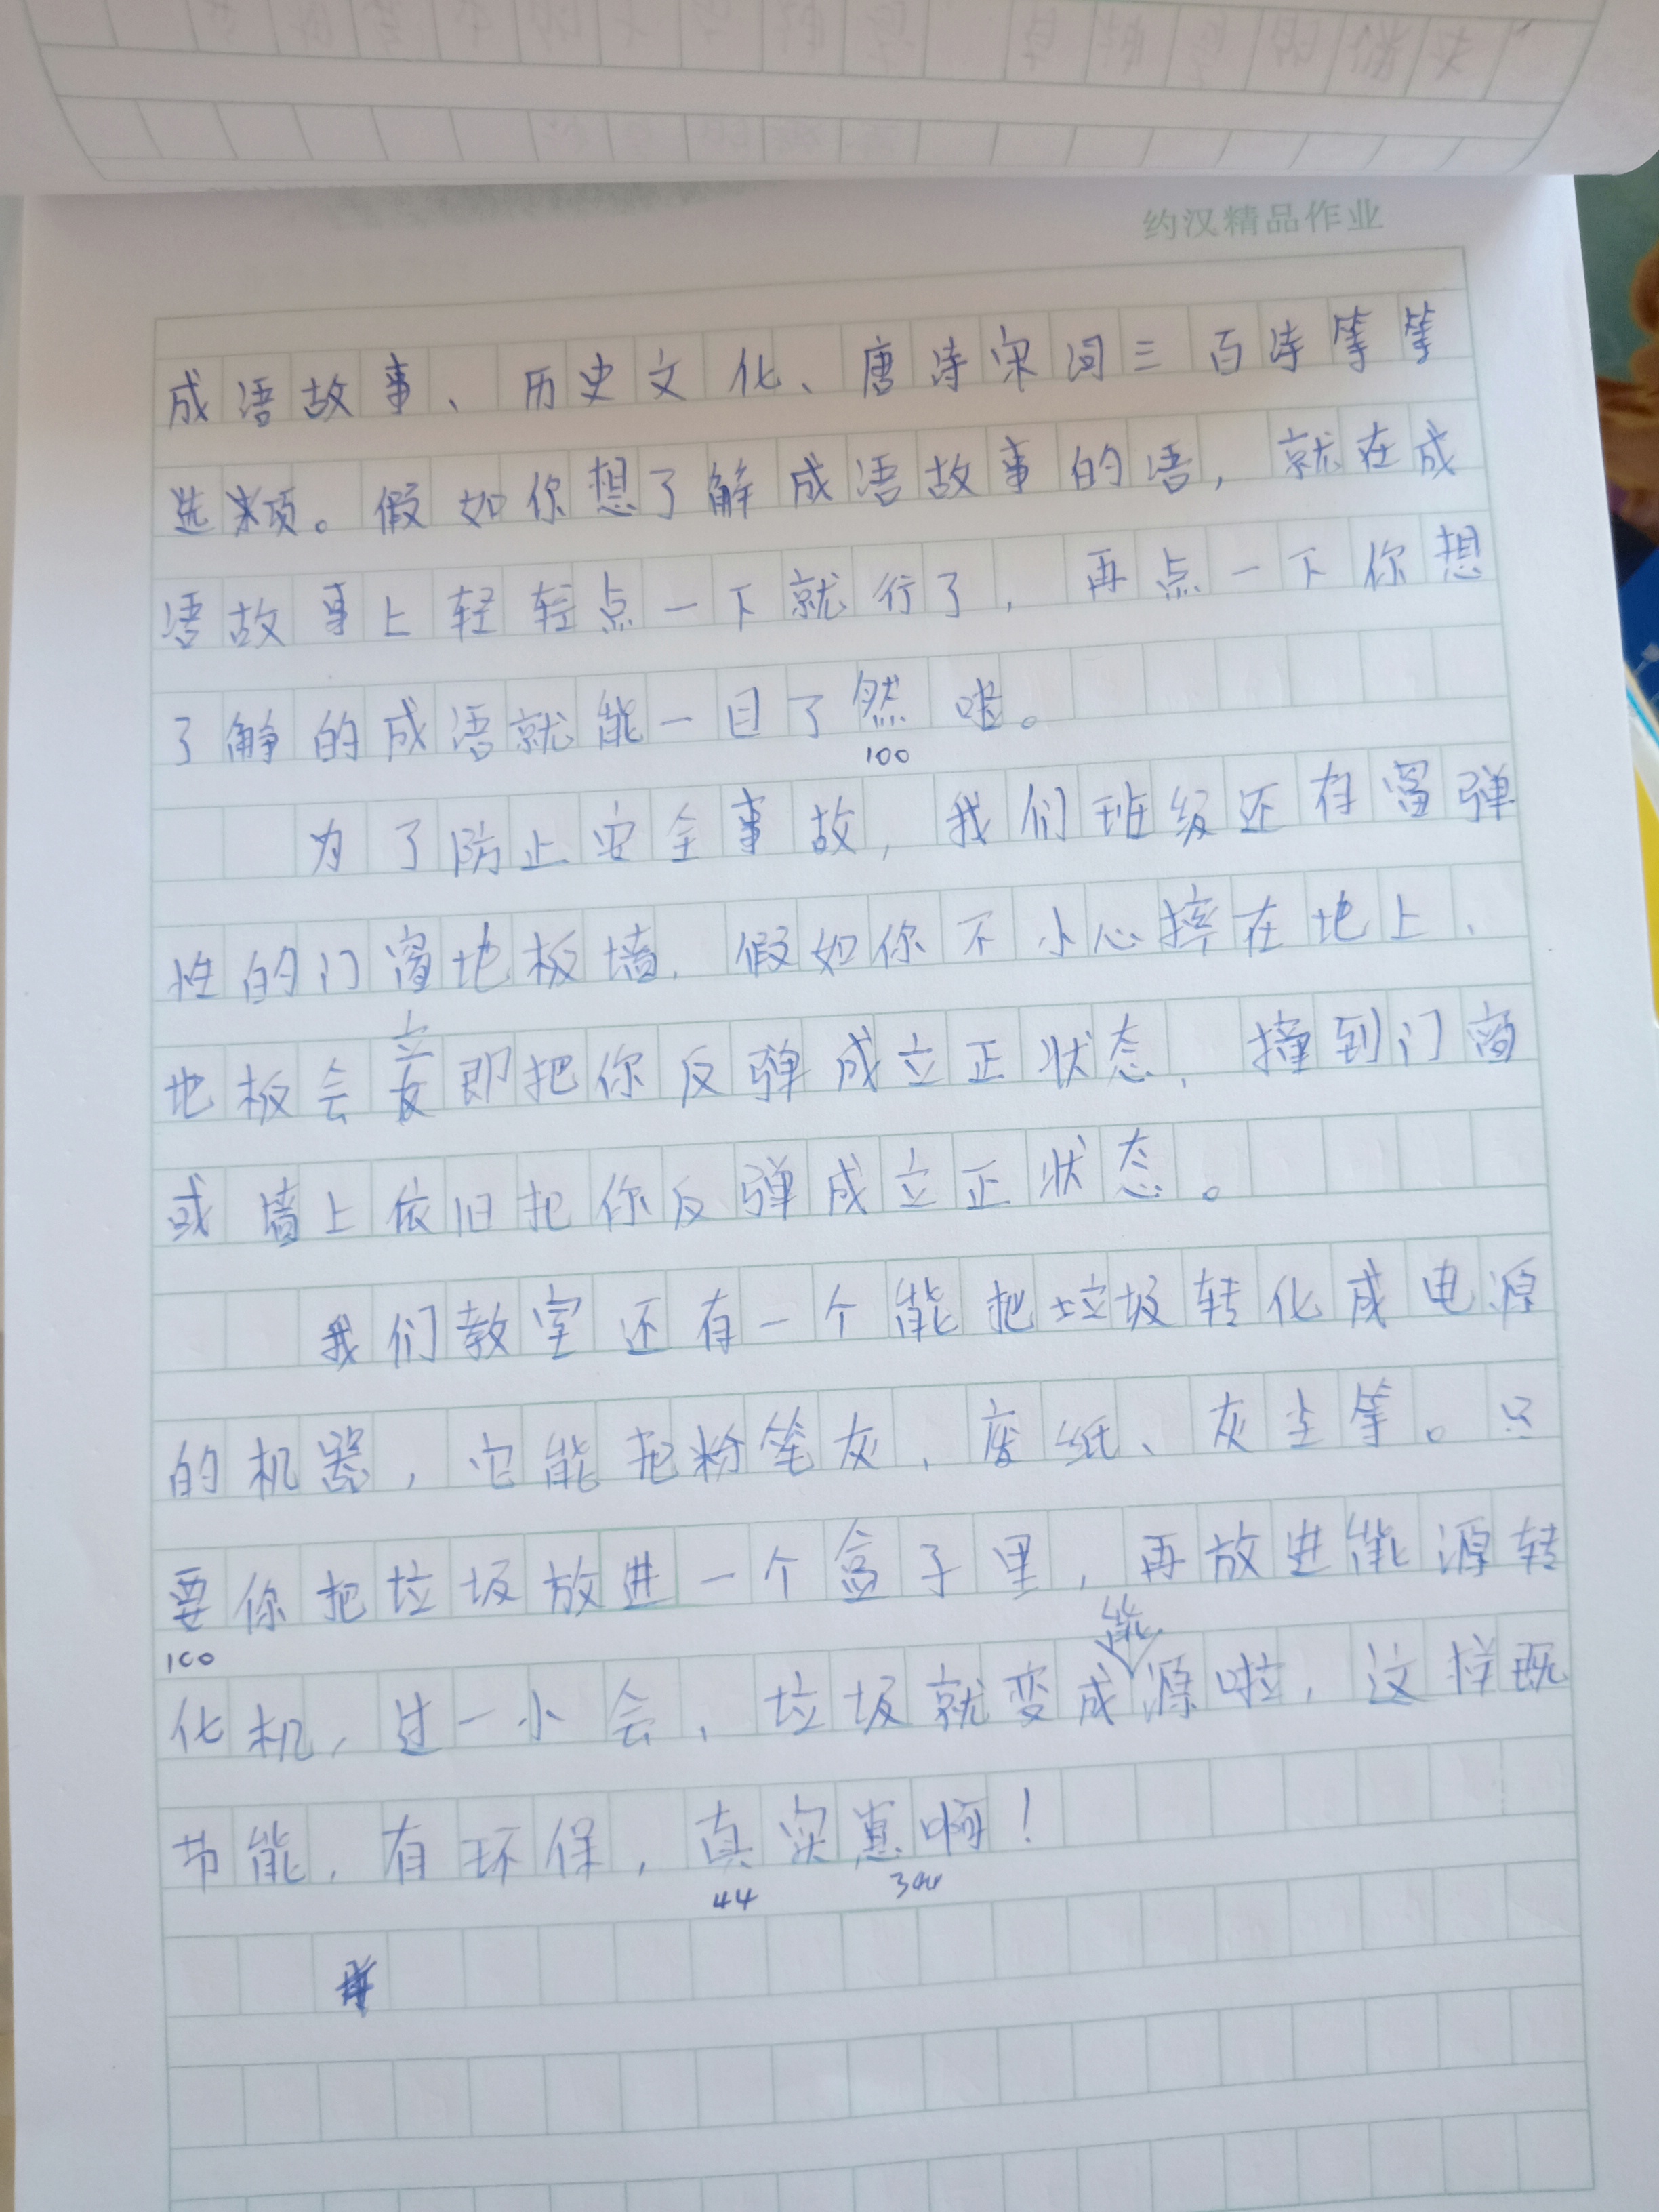 约汉精品作业
成语故事、历史文化、唐诗宋词三百诗等等
选项。假如你想了解成语故事的语,就在成
语故事上轻轻点一下就行了,再点一下你想
了解的成语就能一目了然啦。
100
为了防止安全事故,我们班级还有富弹
性的门窗地板墙,假如你不小心摔在地上、
地板会立即把你反弹成立正状态、撞到门窗
或墙上依旧把你反弹成立正状态。
我们教室还有一个能把垃圾转化成电源
的机器,它能把粉笔灰、废纸、灰尘等。只
要你把垃圾放进一个盒子里,再放进能源转
100
化机,过一小会,垃圾就变成能源啦,这样既
节能,有环保,真实惠啊!
44 300